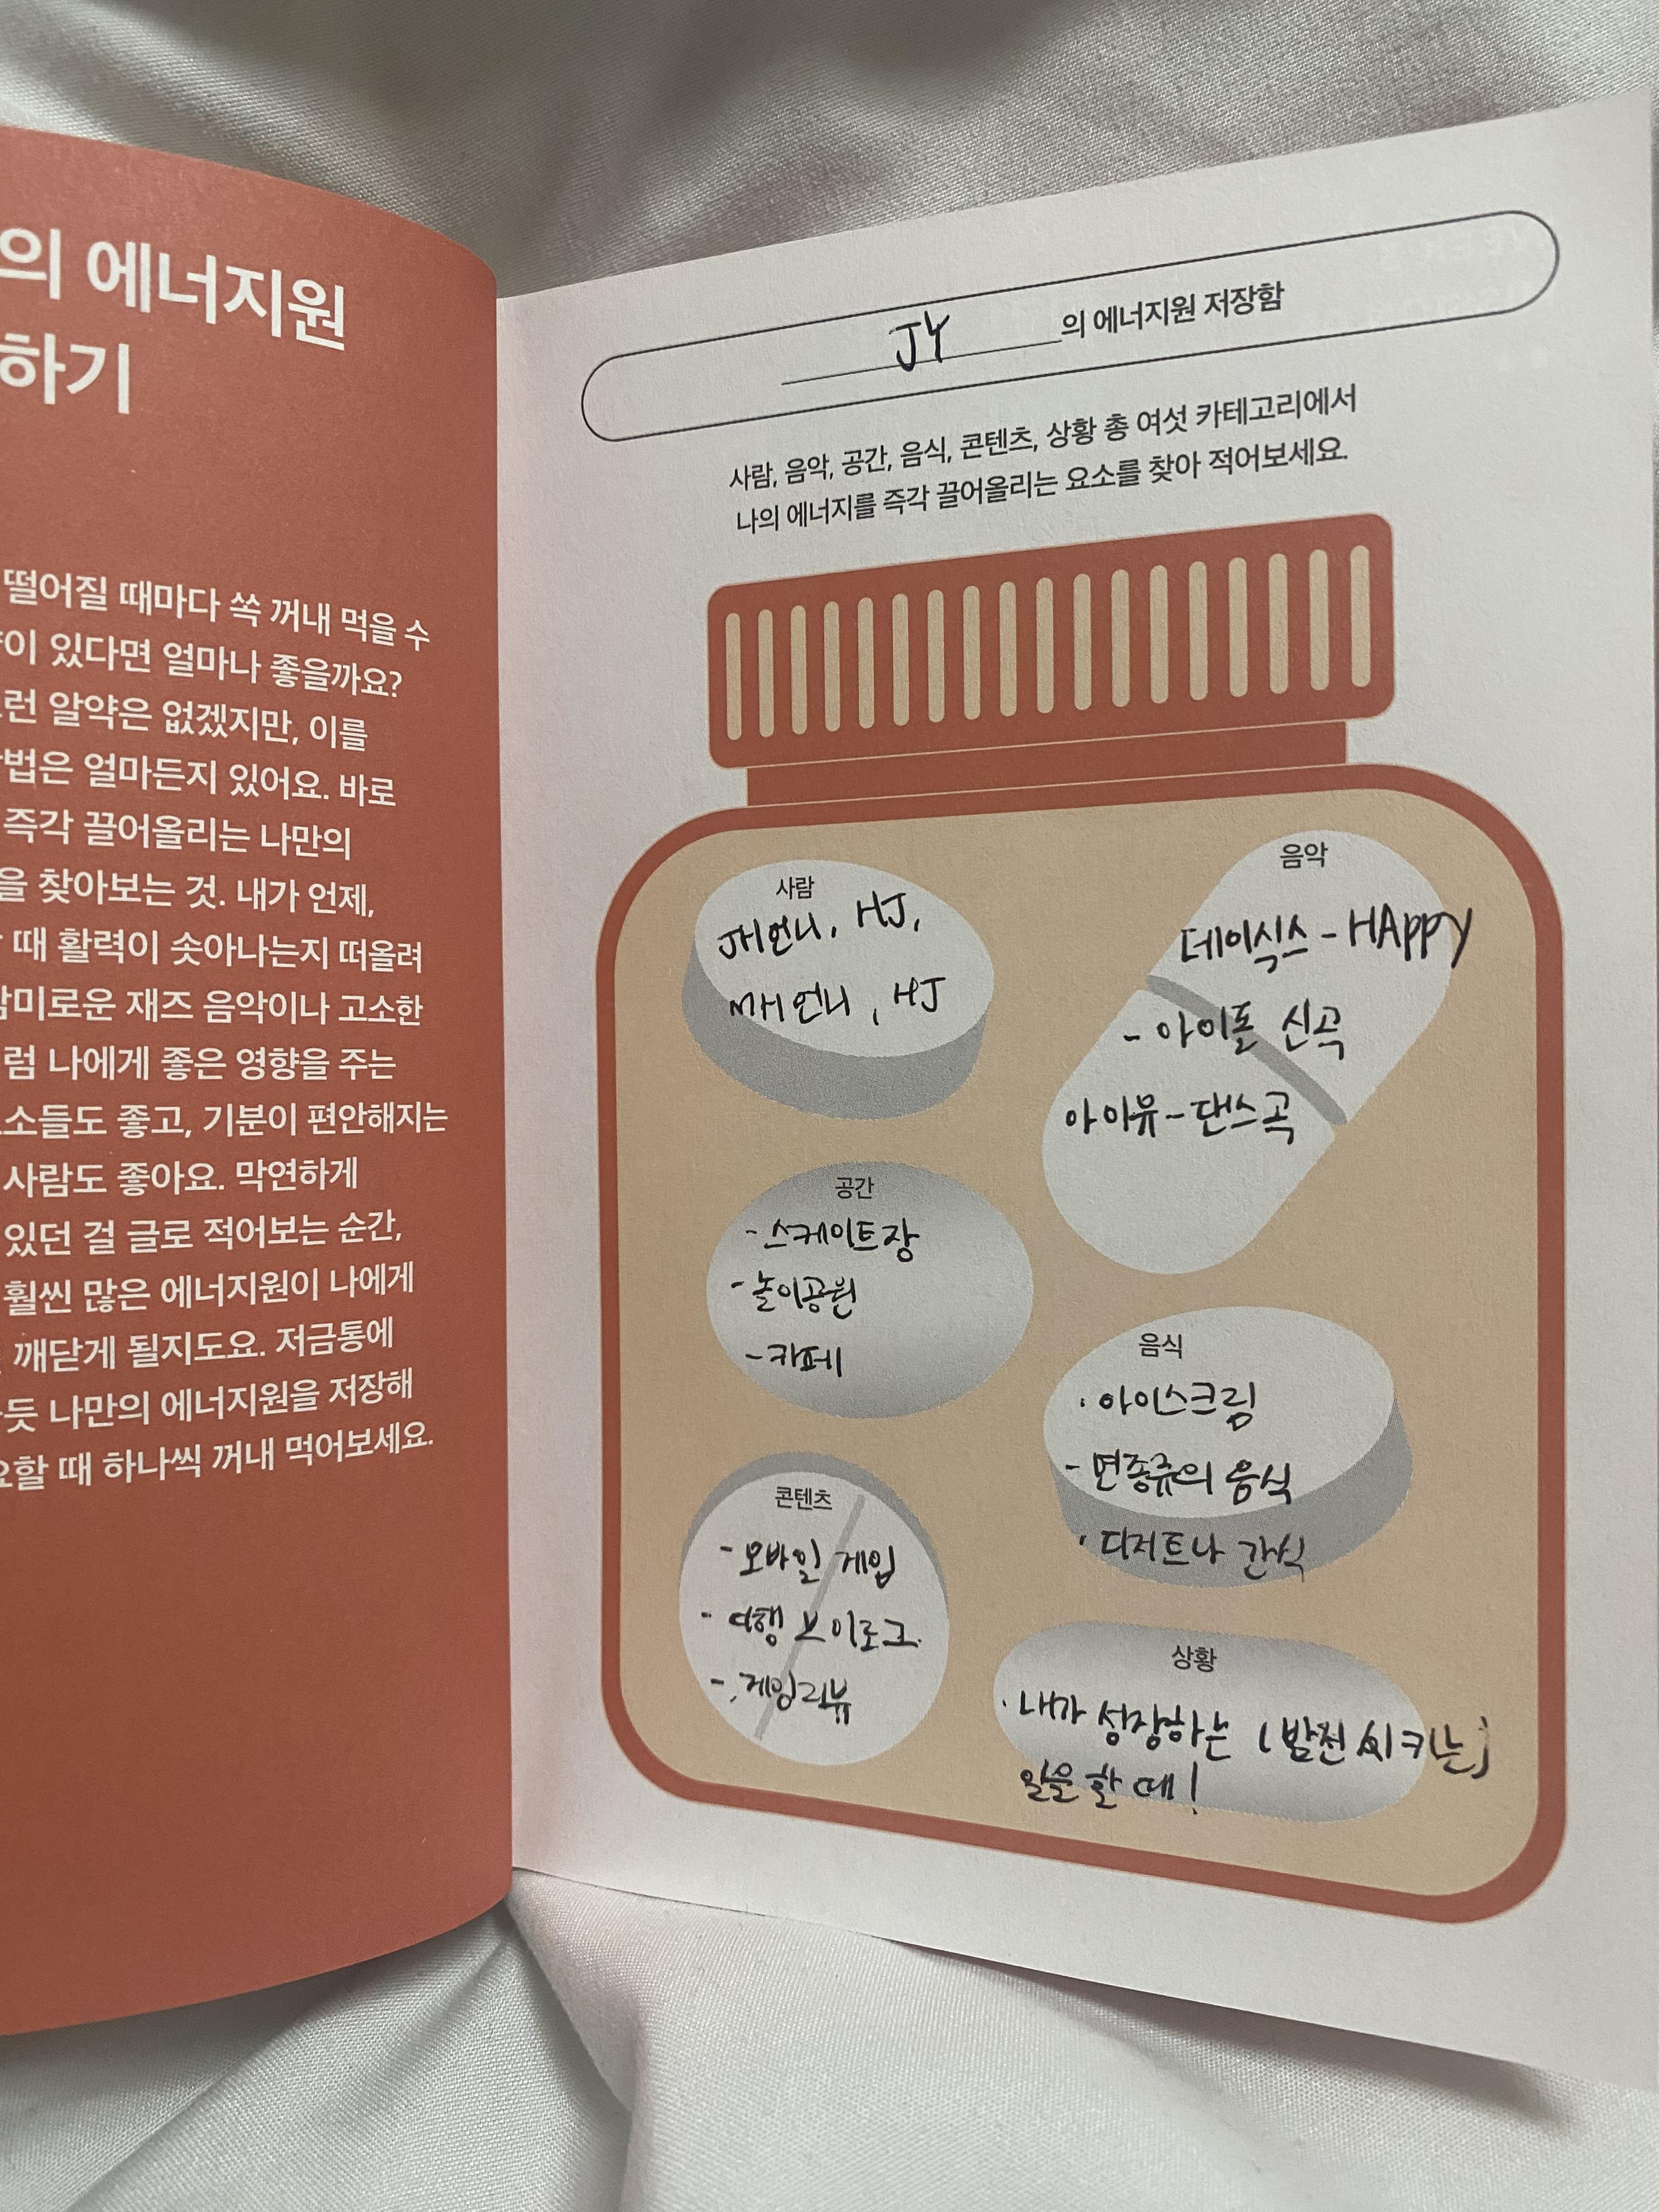 의 에너지원
하기
떨어질 때마다 쏙 꺼내 먹을 수
이 있다면 얼마나 좋을까요?
런 알약은 없겠지만, 이를
법은 얼마든지 있어요. 바로
즉각 끌어올리는 나만의
을 찾아보는 것. 내가 언제,
때 활력이 솟아나는지 떠올려
감미로운 재즈 음악이나 고소한
럼 나에게 좋은 영향을 주는
소들도 좋고, 기분이 편안해지는
사람도 좋아요. 막연하게
있던 걸 글로 적어보는 순간,
훨씬 많은 에너지원이 나에게
깨닫게 될지도요. 저금통에
듯 나만의 에너지원을 저장해
요할 때 하나씩 꺼내 먹어보세요.
JY의 에너지원 저장함
사람, 음악, 공간, 음식, 콘텐츠, 상황 총 여섯 카테고리에서
나의 에너지를 즉각 끌어올리는 요소를 찾아 적어보세요.
사람
JH언니, HJ,
MH언니, HJ
음악
데이식스 - HAppy
- 아이돌 신곡
아이유 - 댄스곡
공간
- 스케이트장
- 놀이공원
- 카페
음식
· 아이스크림
- 면종류의 음식
· 디저트나 간식
콘텐츠
- 모바일 게임
- 여행 브이로그.
- 게임리뷰
상황
· 내가 성장하는 (발전 씨키는)
일을 할 때!